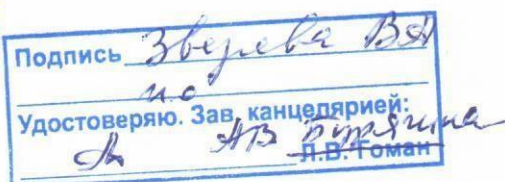 Подпись Зверева ВА
ио
Удостоверяю. Зав. канцелярией:
АВ Бурягина
Л.В. Гоман